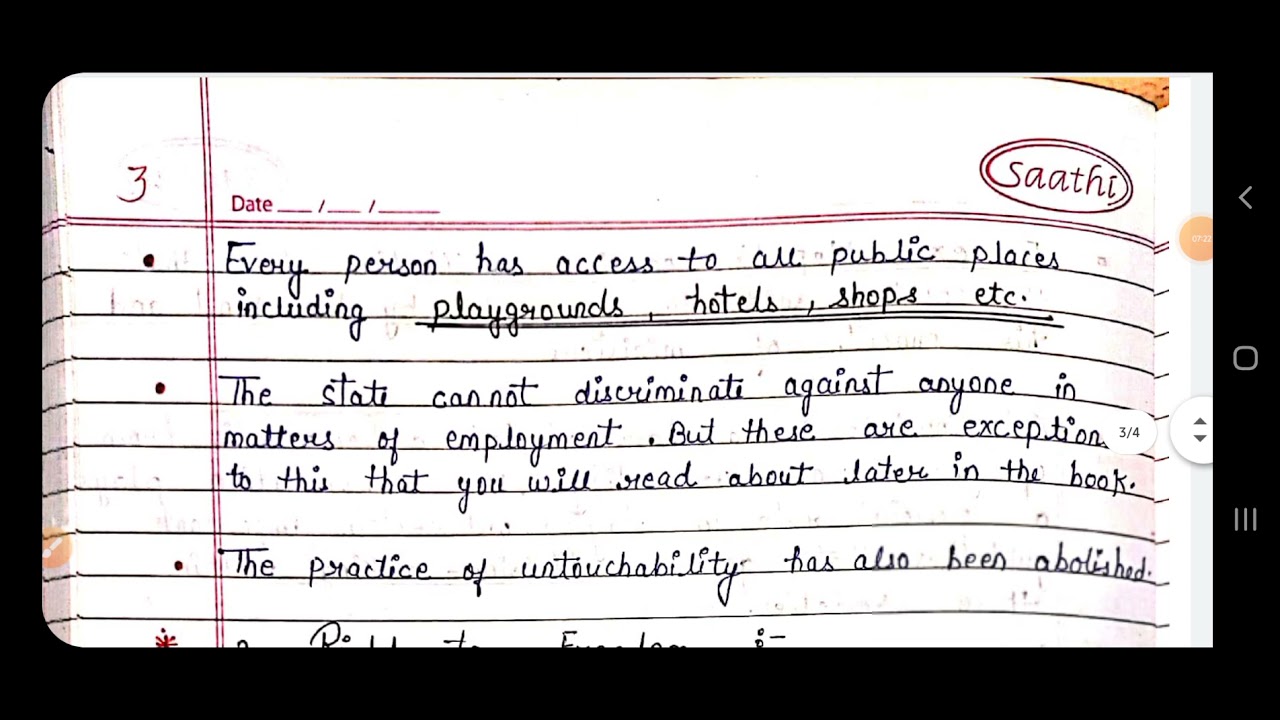 3
Date __ / __ / ____
Saathi
07:22
• Every person has access to all public places
including playgrounds, hotels, shops etc.
• The state cannot discriminate against anyone in
matters of employment. But these are exception
3/4
to this that you will read about later in the book.
• The practice of untouchability has also been abolished.
* 2. Right to Freedom :-